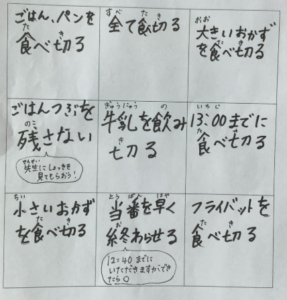 ごはん、パンを
食べ切る
全て食べ切る
大きいおかず
を食べ切る
ごはんつぶを
残さない
先生にしょっきを
見てもらおう!
牛乳を飲み
切る
13:00までに
食べ切る
小さいおかず
を食べ切る
当番を早く
終わらせる
12:40までに
いただきますができ
たら○
フライバットを
食べ切る